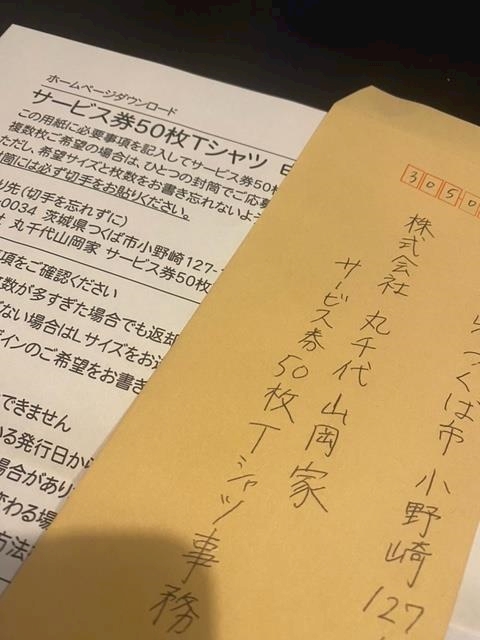 ホームページダウンロード
サービス券50枚Tシャツ
この用紙に必要事項を記入してサービス券50枚
複数枚ご希望の場合は、ひとつの封筒でご応募
ただし、希望サイズと枚数をお書き忘れないよう
封筒には必ず切手をお貼りください。
り先(切手を忘れずに)
-0034 茨城県つくば市小野崎127-
丸千代山岡家 サービス券50枚
事項をご確認ください
枚数が多すぎた場合でも返却
ない場合はLサイズをお送
ザインのご希望をお書き
できません
いる発行日から
場合があり
変わる場
方法
3050
つくば市 小野崎 127
株式会社 丸千代 山岡家
サービス券 50枚 Tシャツ 事務